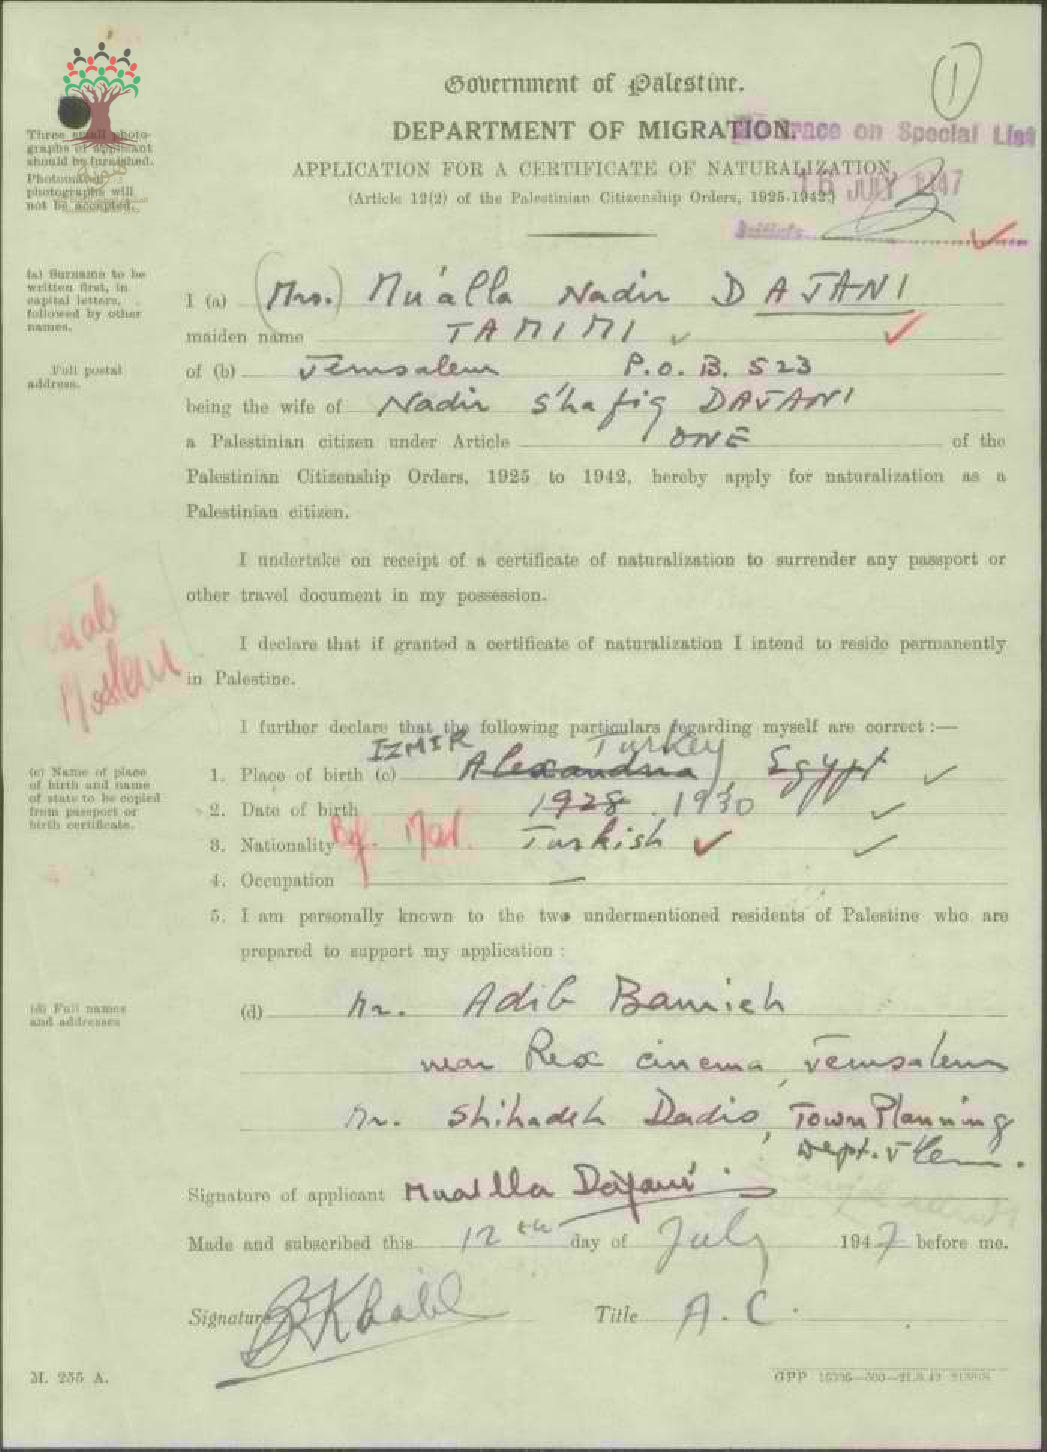 1
Government of Palestine.
DEPARTMENT OF MIGRATION.
Trace on Special List
APPLICATION FOR A CERTIFICATE OF NATURALIZATION
(Article 12(2) of the Palestinian Citizenship Orders, 1925-1942)
JULY 1947
Initials
Three small photographs of applicant should be furnished. Photomaton photographs will not be accepted.
(a) Surname to be written first, in capital letters, followed by other names.
I (a) (Mrs.) Mu'alla Nadir DAJANI
maiden name TAMIMI
Full postal address.
of (b) Jerusalem P.O.B. 523
being the wife of Nadir Shafiq DAJANI
a Palestinian citizen under Article ONE of the
Palestinian Citizenship Orders, 1925 to 1942, hereby apply for naturalization as a
Palestinian citizen.
I undertake on receipt of a certificate of naturalization to surrender any passport or
other travel document in my possession.
Arab
Moslem
I declare that if granted a certificate of naturalization I intend to reside permanently
in Palestine.
I further declare that the following particulars regarding myself are correct :—
IZMIR Turkey
(c) Name of place of birth and name of state to be copied from passport or birth certificate.
1. Place of birth (c) Alexandria, Egypt
2. Date of birth 1928 . 1930
3. Nationality Bef. Mar. Turkish
4. Occupation —
5. I am personally known to the two undermentioned residents of Palestine who are
prepared to support my application :
(d) Full names and addresses
(d) Mr. Adib Bamieh
near Rex cinema, Jerusalem
Mr. Shihadeh Dadio, Town Planning
Dept. J'lem.
Signature of applicant Mualla Dajani
Made and subscribed this 12th day of July 1947 before me.
Signature Title A.C.
M. 255 A.